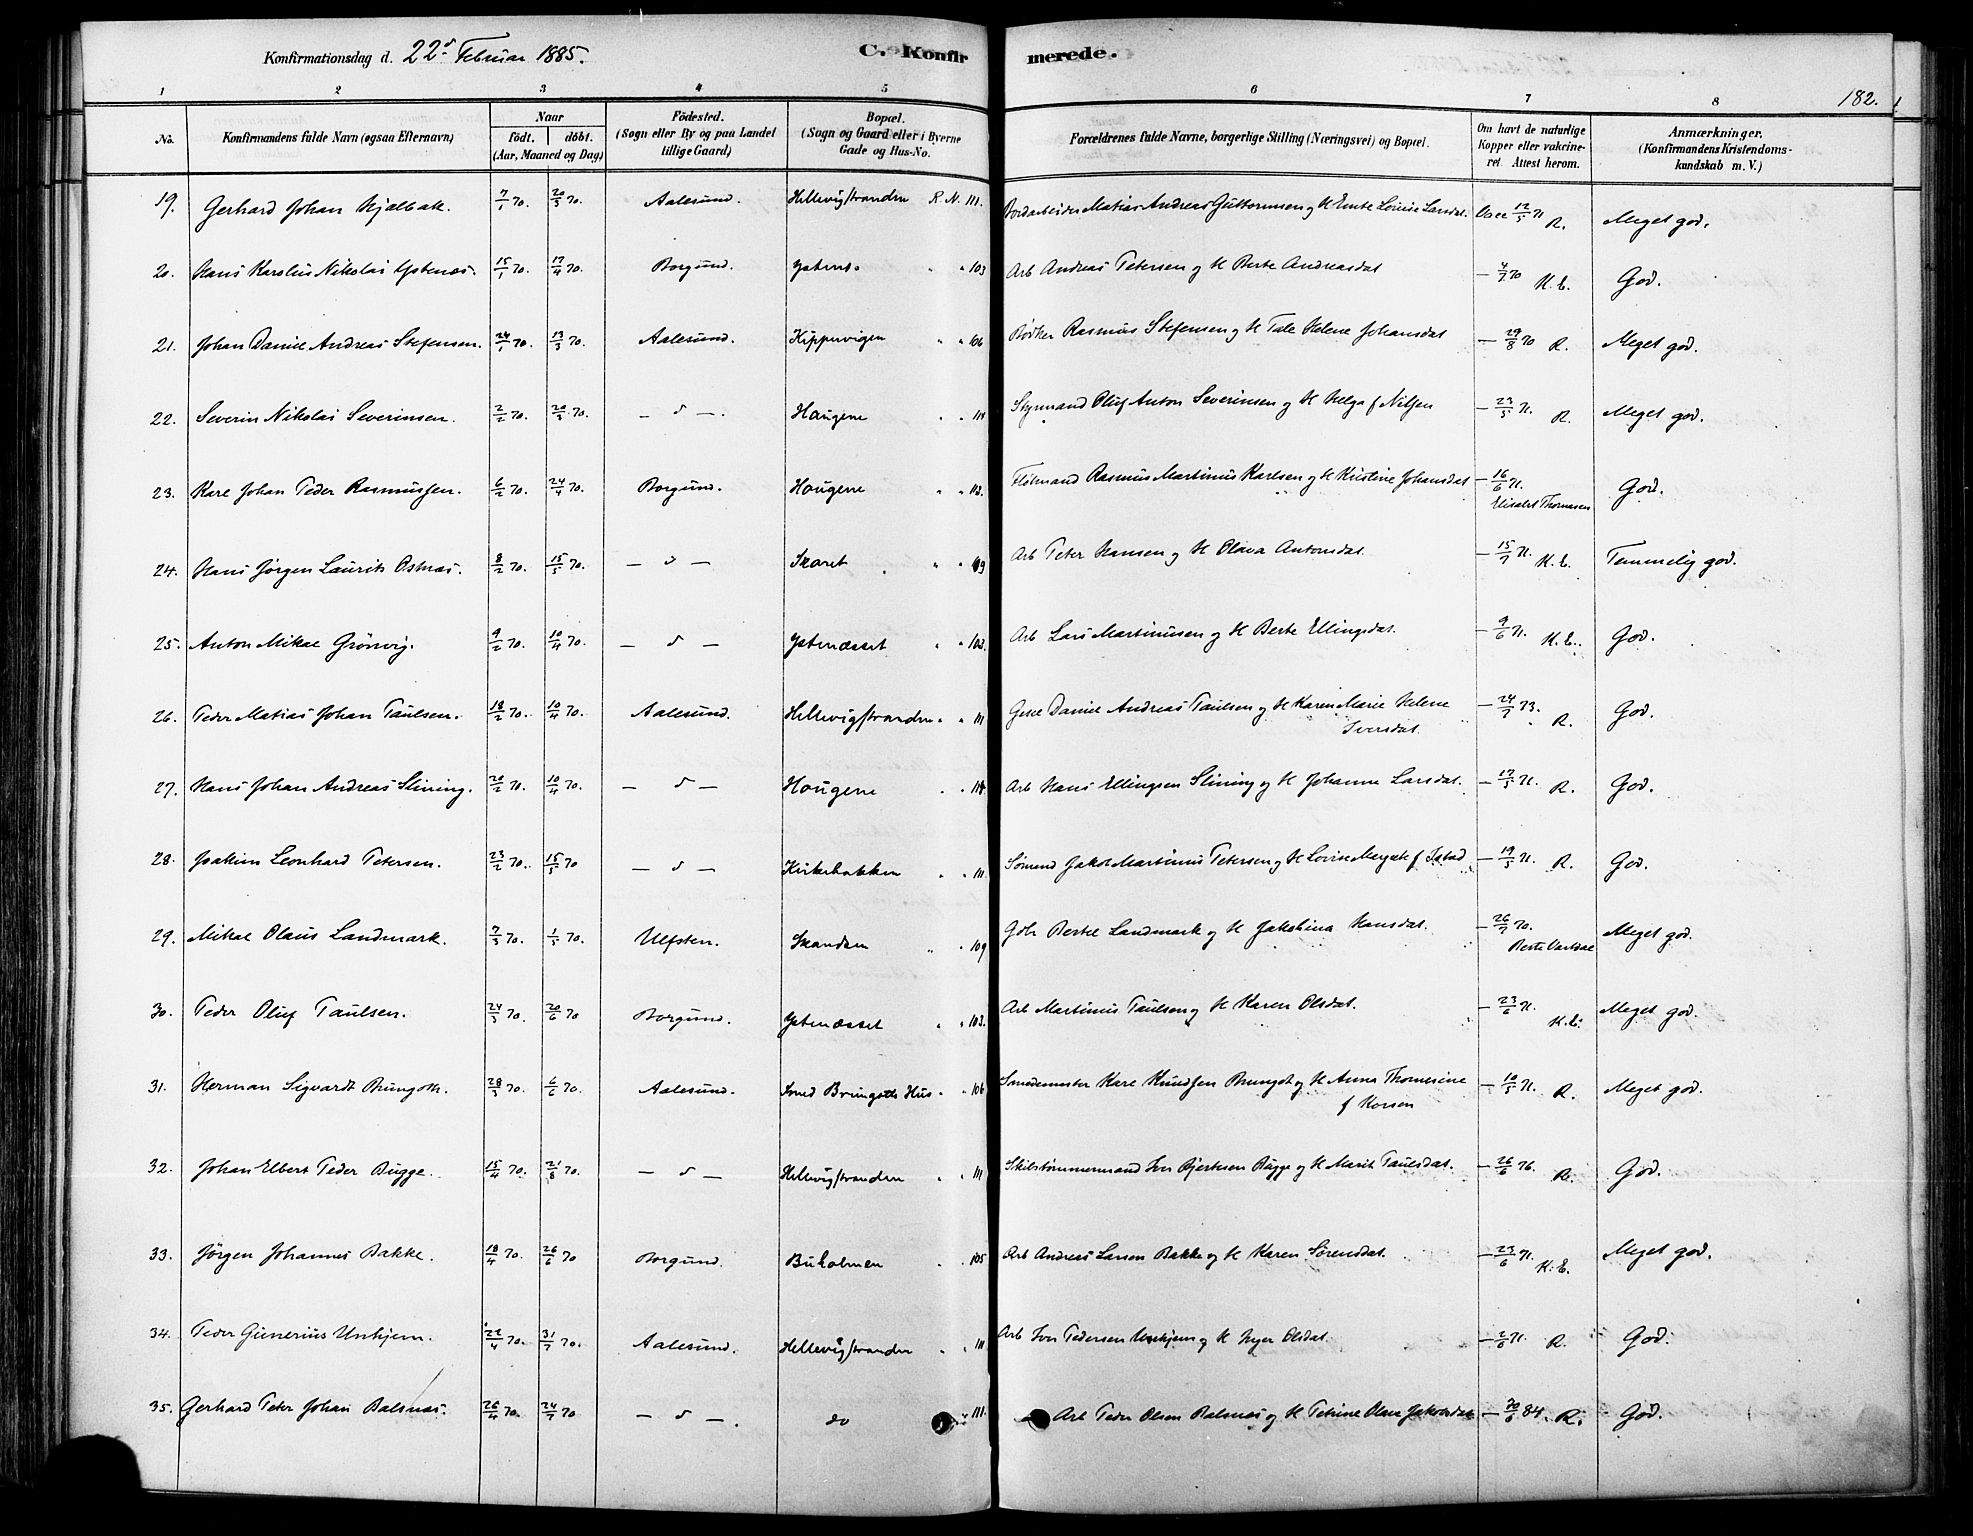 Konfirmationsdag d. 22d Februar 1885. C. Konfirmerede.
182.
1 2 3 4 5 6 7 8
No. Konfirmandens fulde Navn (ogsaa Efternavn) Naar Födt. döbt. (Aar, Maaned og Dag) Födested. (Sogn eller By og paa Landet tillige Gaard) Bopæl. (Sogn og Gaard eller i Byerne Gade og Hus-No. Forældrenes fulde Navne, borgerlige Stilling (Næringsvei) og Bopæl. Om havt de naturlige Kopper eller vakcineret. Attest herom. Anmærkninger. (Konfirmandens Kristendomskundskab m. V.)
19. Gerhard Johan Hjalbak. 7/1 70. 20/3 70. Aalesund. Hellevigstranden R. N. 111. Matias Andreas Guttormsen og H Louise Larsdat. Vacc 12/5 71 R. Meget god.
20. Hans Karolius Nikolai Ystenæs. 15/1 70. 17/4 70. Borgund. Ystenæs " " 103 Arb Andreas Petersen og H Berte Andreasdat — 4/7 70 H.C. God.
21. Johan Daniel Andreas Stefensen. 24/1 70. 13/3 70. Aalesund. Kippervigen " " 106 Bödker Rasmus Stefensen og H Tale Helene Johansdat — 29/8 70 R. Meget god.
22. Severin Nikolai Severinsen. 2/2 70. 20/3 70. — d — Haugene " " 111 Styrmand Oluf Anton Severinsen og H Helga f Nilsen — 23/5 71. R. Meget god.
23. Karl Johan Peder Rasmussen. 6/2 70. 24/4 70. Borgund. Haugene " " 112. Rasmus Martinus Karlsen og H Kristine Johansdat — 16/6 71. Elisabet Thomasen God.
24. Hans Jörgen Laurits Ostnæs. 8/2 70. 15/5 70. — d — Skaret " " 109 Arb Peter Hansen og H Olava Antonsdat — 15/7 71. H.C. Temmelig god.
25. Anton Mikal Grönvig. 9/2 70. 10/4 70. — d — Ystenæsset " " 102. Arb Lars Martinusen og H Berte Ellingsdat. — 9/6 71. H.C. God.
26. Peder Matias Johan Paulsen. 18/2 70. 10/4 70. Aalesund. Hellevigstranden " " 111 Daniel Andreas Paulsen og H Karen Marie Helene Iversdat. — 24/7 73. R. God.
27. Hans Johan Andreas Slining. 20/2 70. 10/4 70. — d — Haugene " " 114 Arb Hans Ellingsen Slining og H Johanne Larsdat. — 17/5 71. R. God.
28. Joakim Leonhard Petersen. 23/2 70. 15/5 70 — d — Kirkebakken " " 111 Sömand Jakob Martinus Petersen og H Lovise Margrete f — 19/5 71. R. God.
29. Mikal Olaus Landmark. 7/3 70. 1/5 70. Ulfsten. Skandsen " 109 Gdbr Bertel Landmark og H Jakobina Hansdat. — 26/7 70. Meget god.
30. Peder Oluf Paulsen. 24/3 70. 20/6 70 Borgund. Ystenæsset " " 103. Arb Martinus Paulsen og H Karen Olsdat. — 23/6 71. H.C. Meget god.
31. Herman Sigvardt Brungoth. 28/3 70. 6/6 70. Aalesund. Smed Brungoths Hus " 106 Smedemester Karl Knudsen Brungot og H Anna Thomasine f Korsen — 10/5 71. R. Meget god.
32. Johan Elbert Peder Bugge. 15/4 70. 21/8 70. — d — Hellevigstranden " " 111 Skibstömmermand Iver Bjertesen Bugge og H Marit Paulsdat. — 26/6 76. R. God.
33. Jörgen Johannes Bakke. 18/4 70. 26/6 70 Borgund. Buholmen " . 105 Arb Andreas Larsen Bakke og H Karen Sörensdat. — 23/6 71. H.C. Meget god.
34. Peder Gunerius Unhjem. 22/4 70. 31/7 70. Aalesund. Hellevigstranden " " 111 Arb Iver Pedersen Unhjem og H Inger Olsdat. — 2/6 71. R. God.
35. Gerhard Peter Johan Balsnæs. 26/4 70. 24/7 70 — d — . do " 111. Arb Peder Olsen Balsnæs og H Petrine Olava Jakobsdat — 30/6 84. R. God.